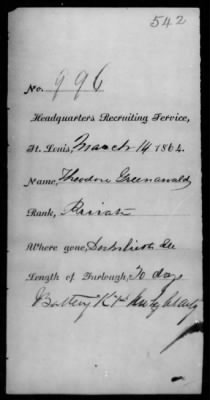 542
No. 996
Headquarters Recruiting Service,
St. Louis, March 14 1864.
Name, Theodore Greenawald
Rank, Private
Where gone,
Length of Furlough, 70 days
Battery K